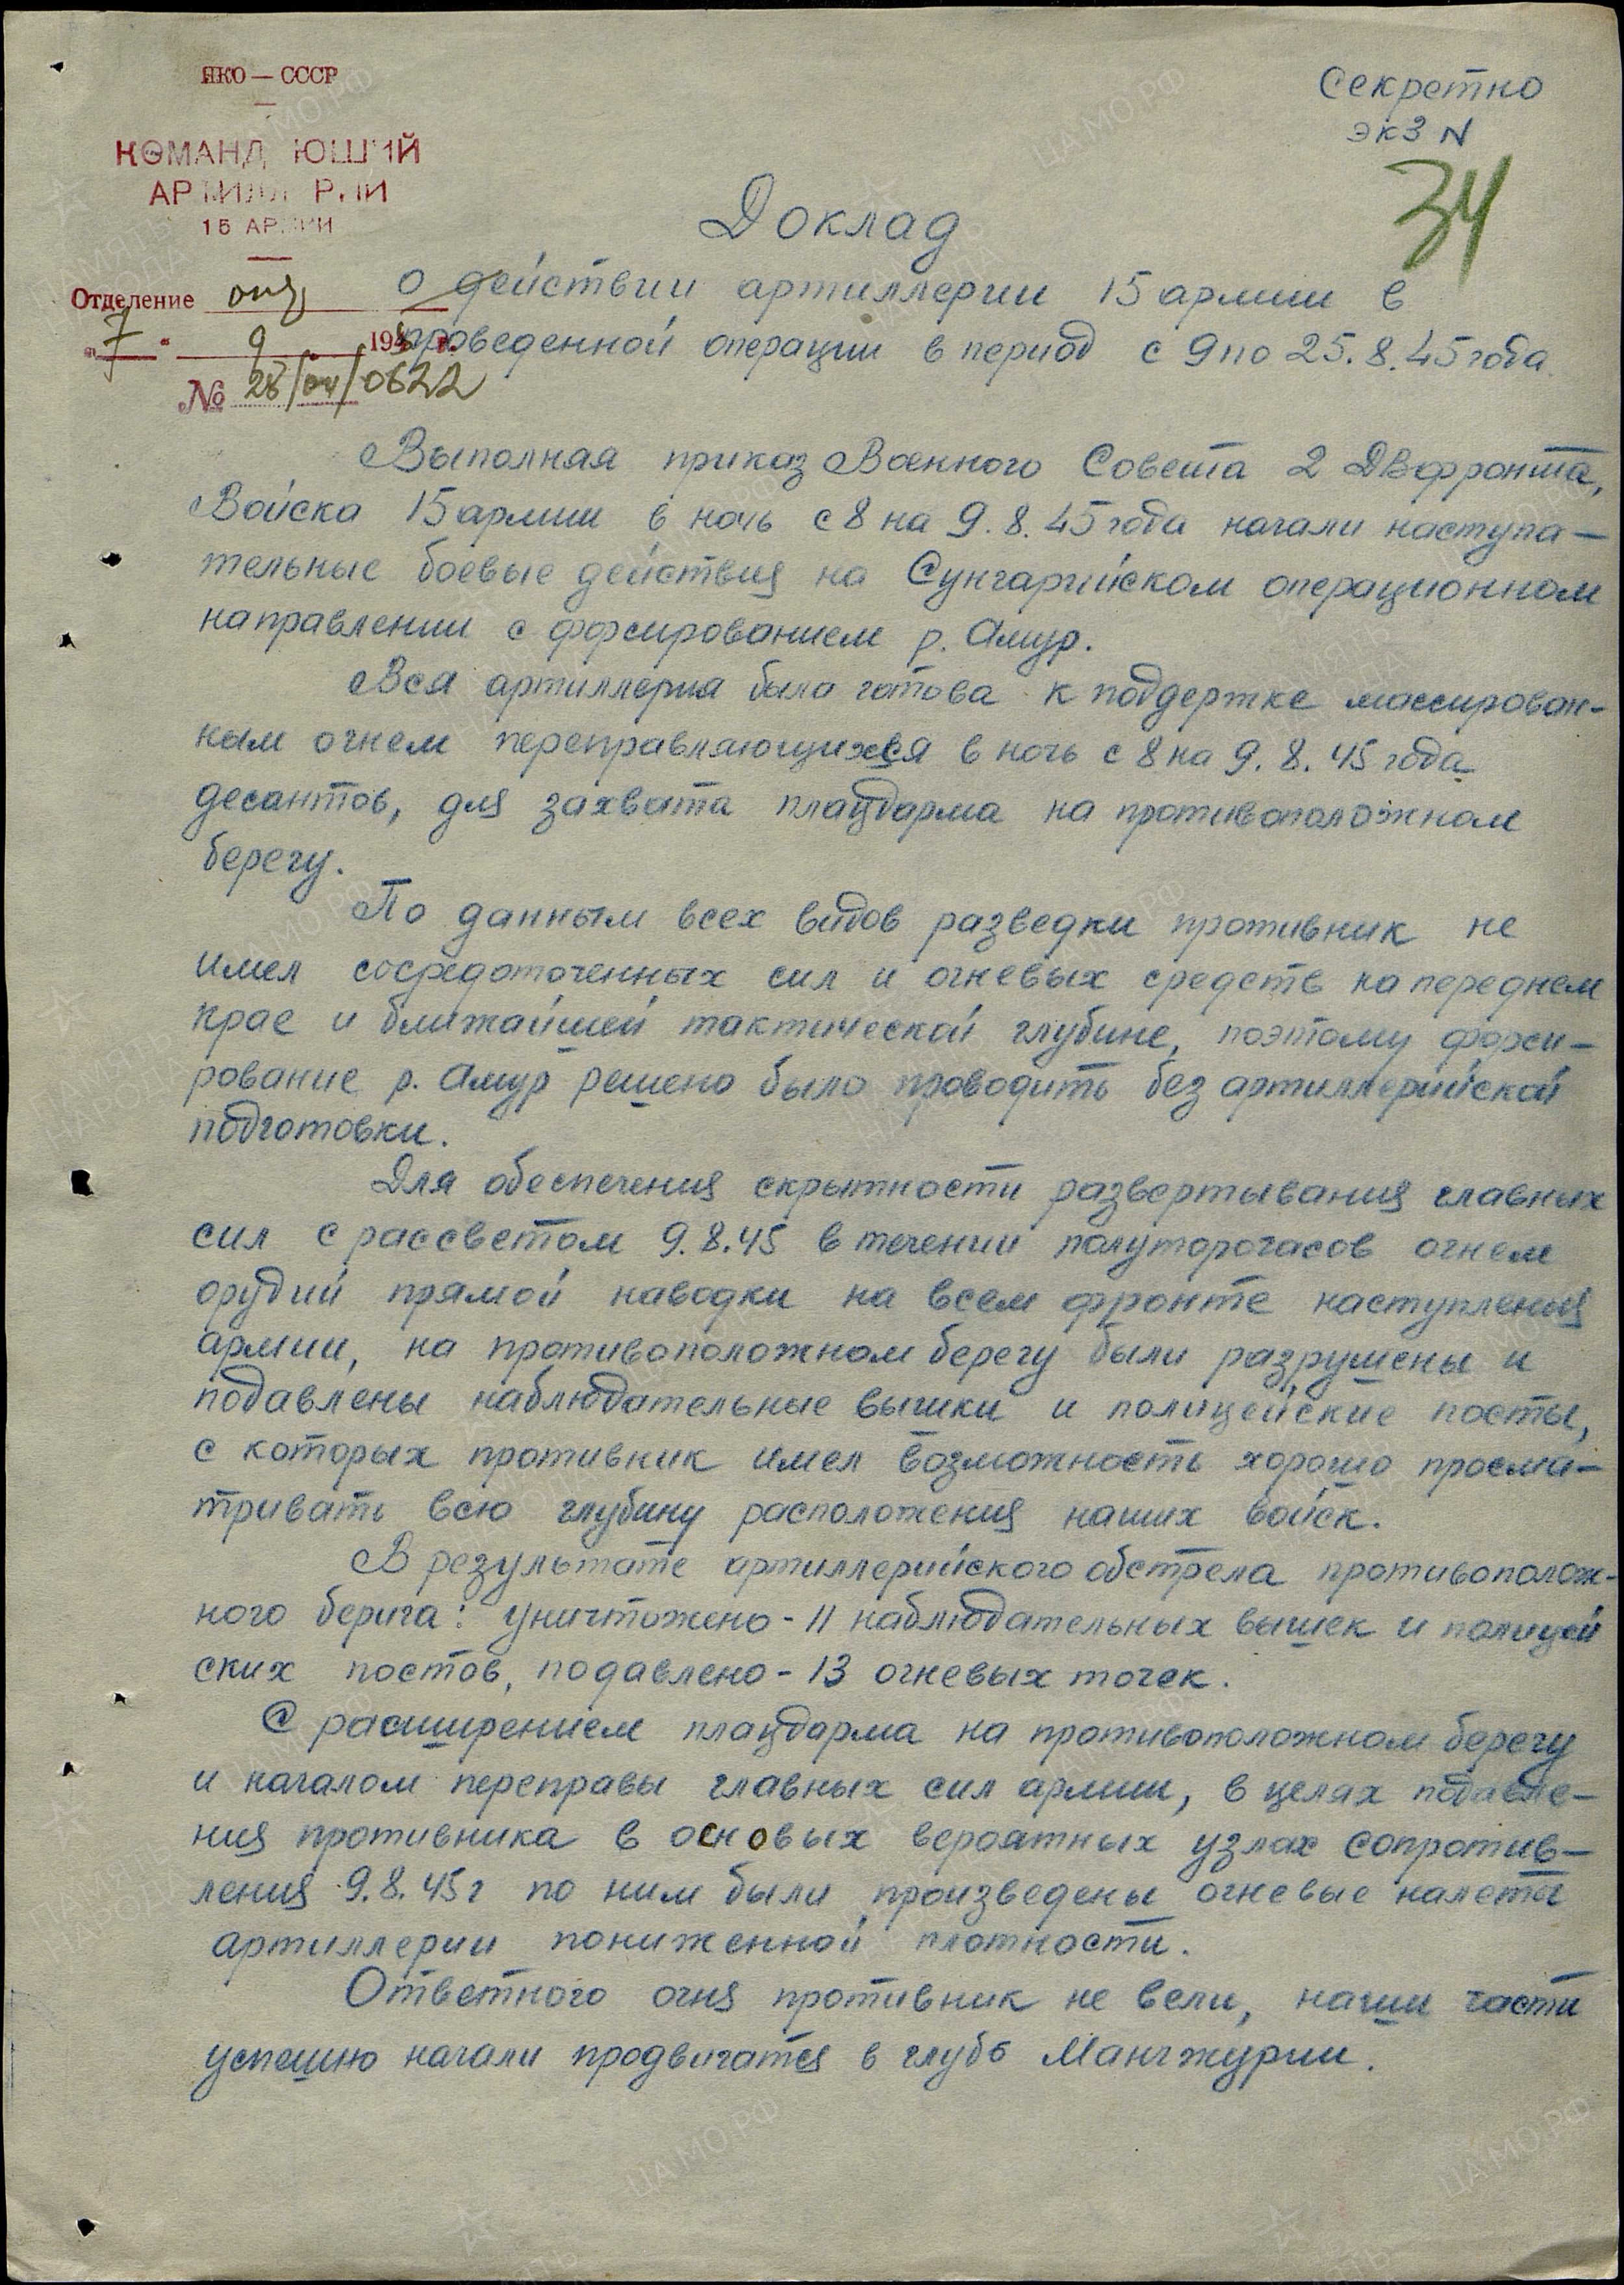 НКО — СССР
КОМАНДУЮЩИЙ
АРТИЛЛЕРИИ
15 АРМИИ
Отделение
„7“ 9 1945 г.
№ 28/оч/0622
Секретно
экз N
34
Доклад
о действии артиллерии 15 армии в
проведенной операции в период с 9 по 25.8.45 года
Выполная приказ Военного Совета 2 ДВфронта,
Войска 15 армии в ночь с 8 на 9.8.45 года начали наступа-
тельные боевые действия на Сунгарийском операционном
направлении с форсированием р. Амур.
Вся артиллерия была готова к поддержке массирован-
ным огнем переправляющихся в ночь с 8 на 9.8.45 года
десантов, для захвата плацдарма на противоположном
берегу.
По данным всех видов разведки противник не
имел сосредоточенных сил и огневых средств на переднем
крае и ближайшей тактической глубине, поэтому форси-
рование р. Амур решено было проводить без артиллерийской
подготовки.
Для обеспечения скрытности развертывания главных
сил с рассветом 9.8.45 в течении полуторочасов огнем
орудий прямой наводки на всем фронте наступления
армии, на противоположном берегу были разрушены и
подавлены наблюдательные вышки и полицейские посты,
с которых противник имел возможность хорошо просма-
тривать всю глубину расположения наших войск.
В результате артиллерийского обстрела противополож-
ного берига: уничтожено - 11 наблюдательных вышек и полицей
ских постов, подавлено - 13 огневых точек.
С расширением плацдарма на противоположном берегу
и началом переправы главных сил армии, в целях подавле-
ния противника в основых вероятных узлах сопротив-
ления 9.8.45 г по ним были произведены огневые налеты
артиллерии пониженной плотности.
Ответного огня противник не вели, наши части
успешно начали продвигатся в глубь Манчжурии.